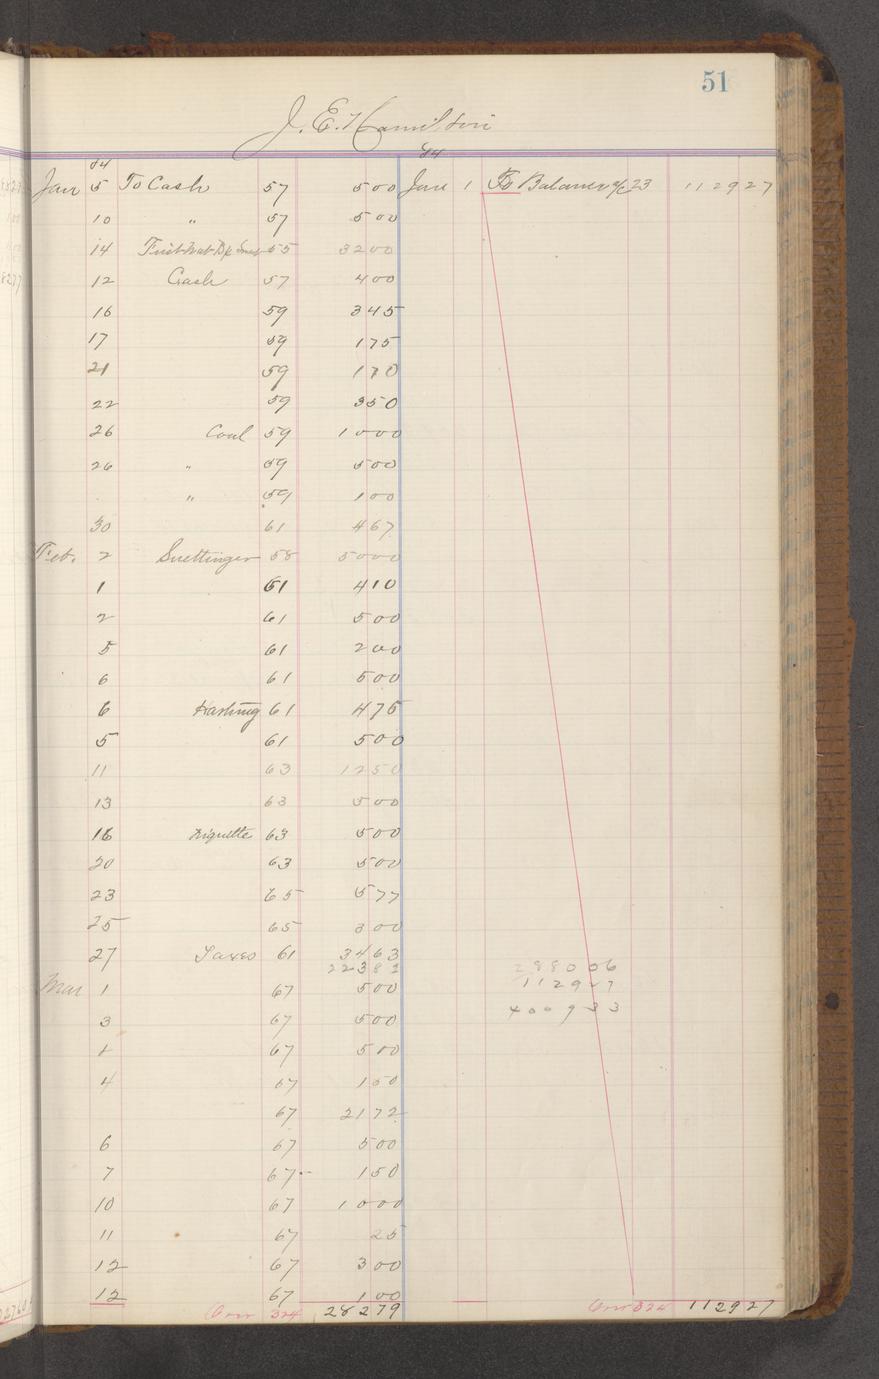 51
J. E. Hamilton
84 84
Jan 5 To Cash 57 500 Jan 1 By Balance 23 112927
10 " 57 500
14 55 3200
12 Cash 57 400
16 59 345
17 59 175
21 59 170
22 59 350
26 Coal 59 1000
26 " 59 500
" 59 100
30 61 467
Feb. 2 Snettinger 58 5000
1 61 410
2 61 500
5 61 200
6 61 500
6 61 475
5 61 500
11 63 1250
13 63 500
16 63 500
20 63 500
23 65 577
25 65 300
27 Taxes 61 3463
22382 288006
Mar 1 67 500 112927
3 67 500 400933
67 500
4 67 150
67 2172
6 67 500
7 67 150
10 67 1000
11 67 25
12 67 300
12 67 100
Over 324 28279 Over 324 112927